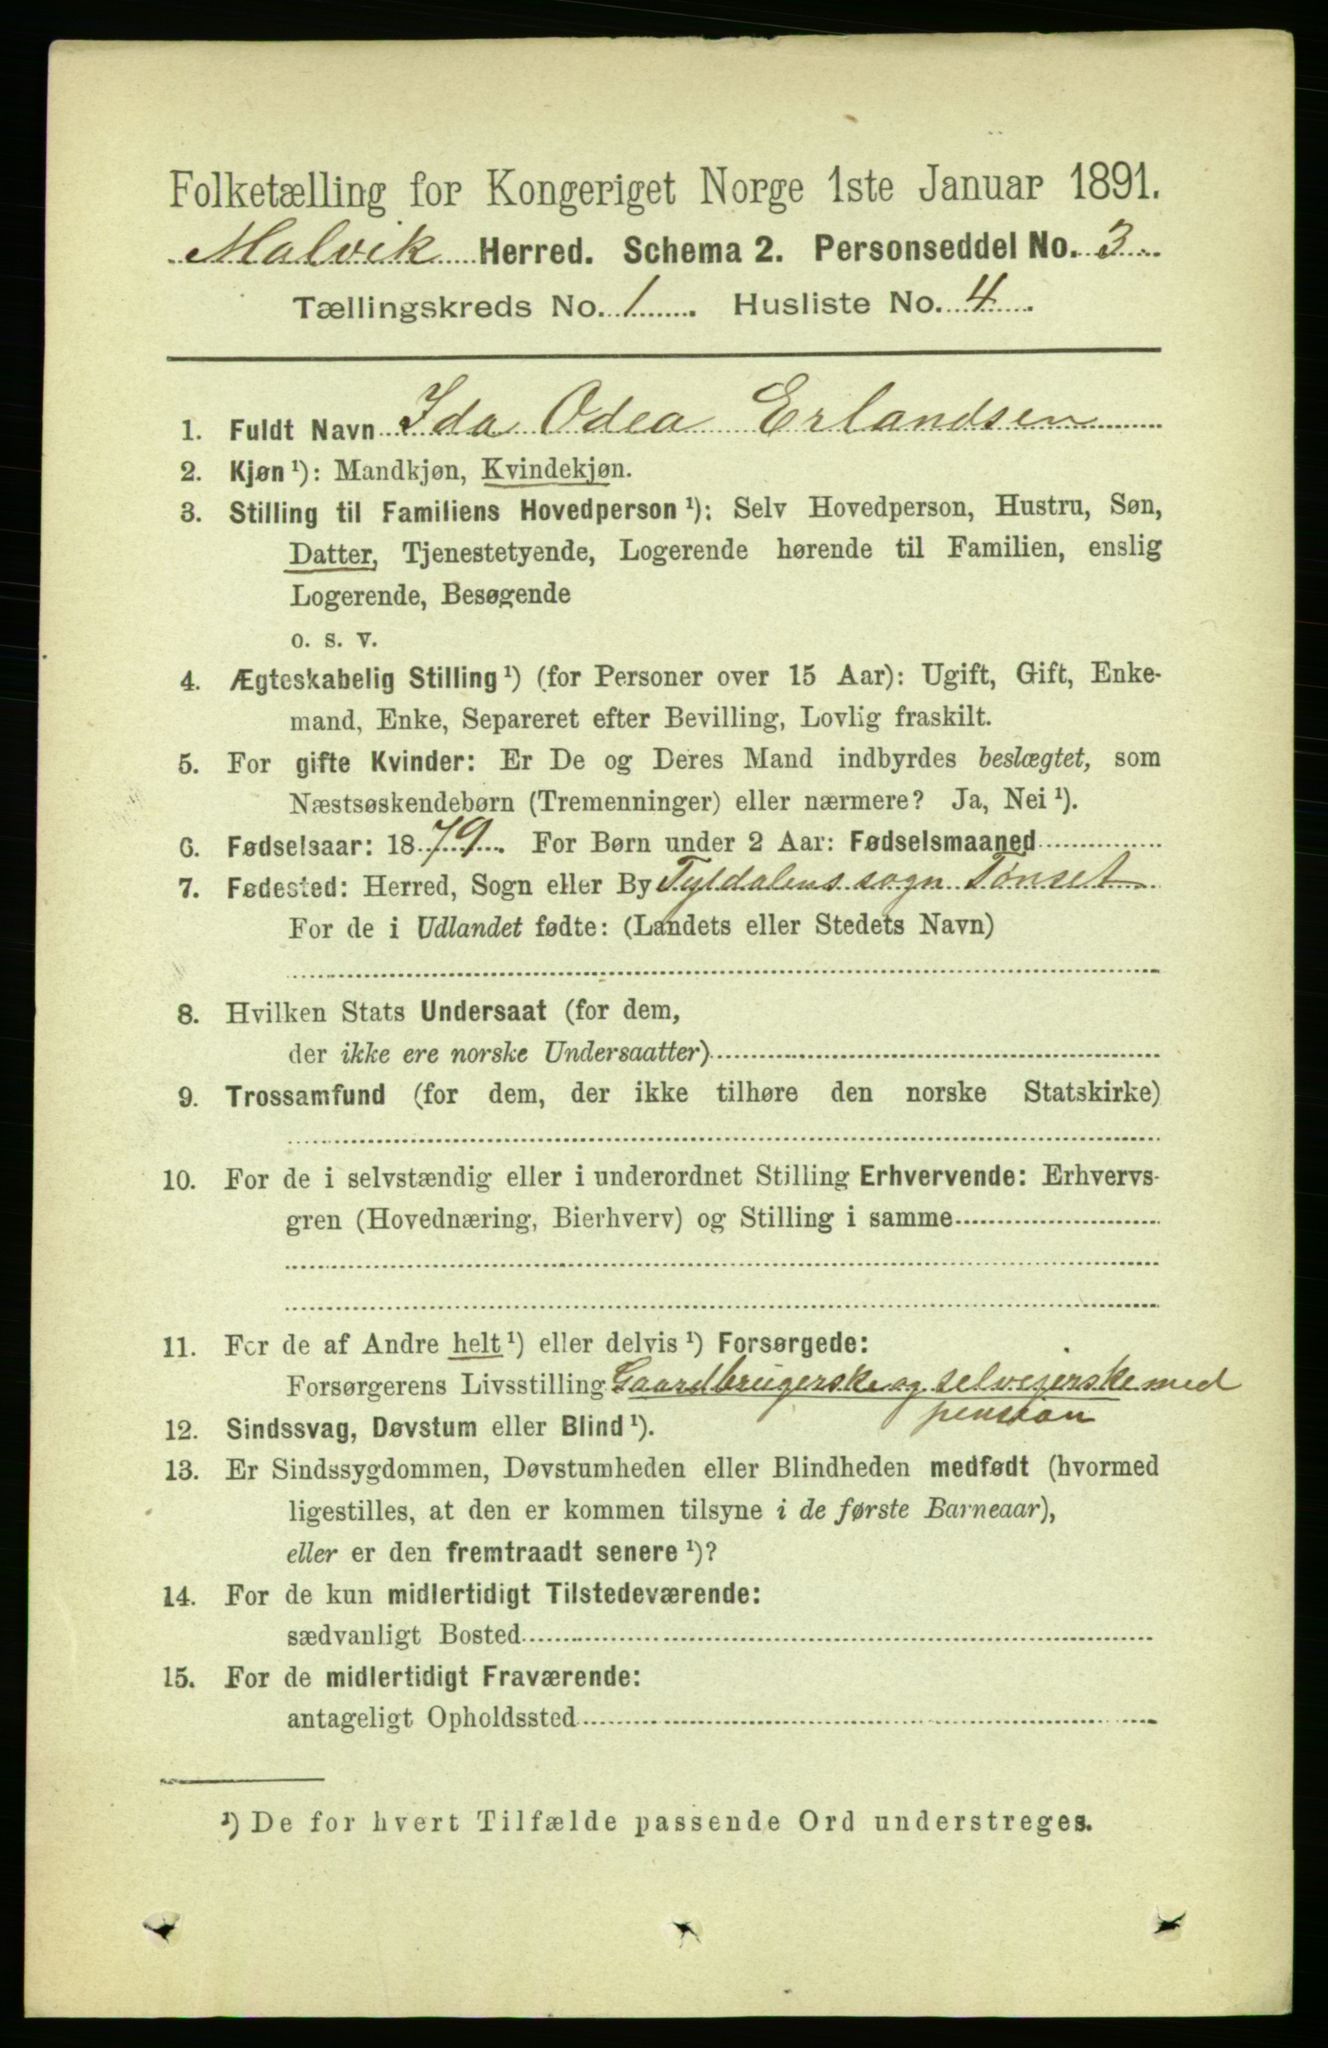 Folketælling for Kongeriget Norge 1ste Januar 1891.
Malvik Herred. Schema 2. Personseddel No. 3
Tællingskreds No. 1. Husliste No. 4.
1. Fuldt Navn Ida Odea Erlandsen
2. Kjøn ¹): Mandkjøn, Kvindekjøn.
3. Stilling til Familiens Hovedperson ¹): Selv Hovedperson, Hustru, Søn,
Datter, Tjenestetyende, Logerende hørende til Familien, enslig
Logerende, Besøgende
o. s. v.
4. Ægteskabelig Stilling ¹) (for Personer over 15 Aar): Ugift, Gift, Enke-
mand, Enke, Separeret efter Bevilling, Lovlig fraskilt.
5. For gifte Kvinder: Er De og Deres Mand indbyrdes beslægtet, som
Næstsøskendebørn (Tremenninger) eller nærmere? Ja, Nei ¹).
6. Fødselsaar: 1879. For Børn under 2 Aar: Fødselsmaaned
7. Fødested: Herred, Sogn eller By Tyldalens sogn Tønset
For de i Udlandet fødte: (Landets eller Stedets Navn)
8. Hvilken Stats Undersaat (for dem,
der ikke ere norske Undersaatter)
9. Trossamfund (for dem, der ikke tilhøre den norske Statskirke)
10. For de i selvstændig eller i underordnet Stilling Erhvervende: Erhvervs-
gren (Hovednæring, Bierhverv) og Stilling i samme
11. For de af Andre helt ¹) eller delvis ¹) Forsørgede:
Forsørgerens Livsstilling Gaardbrugerske og selvejerske med
pension
12. Sindssvag, Døvstum eller Blind ¹).
13. Er Sindssygdommen, Døvstumheden eller Blindheden medfødt (hvormed
ligestilles, at den er kommen tilsyne i de første Barneaar),
eller er den fremtraadt senere ¹)?
14. For de kun midlertidigt Tilstedeværende:
sædvanligt Bosted
15. For de midlertidigt Fraværende:
antageligt Opholdssted
¹) De for hvert Tilfælde passende Ord understreges.